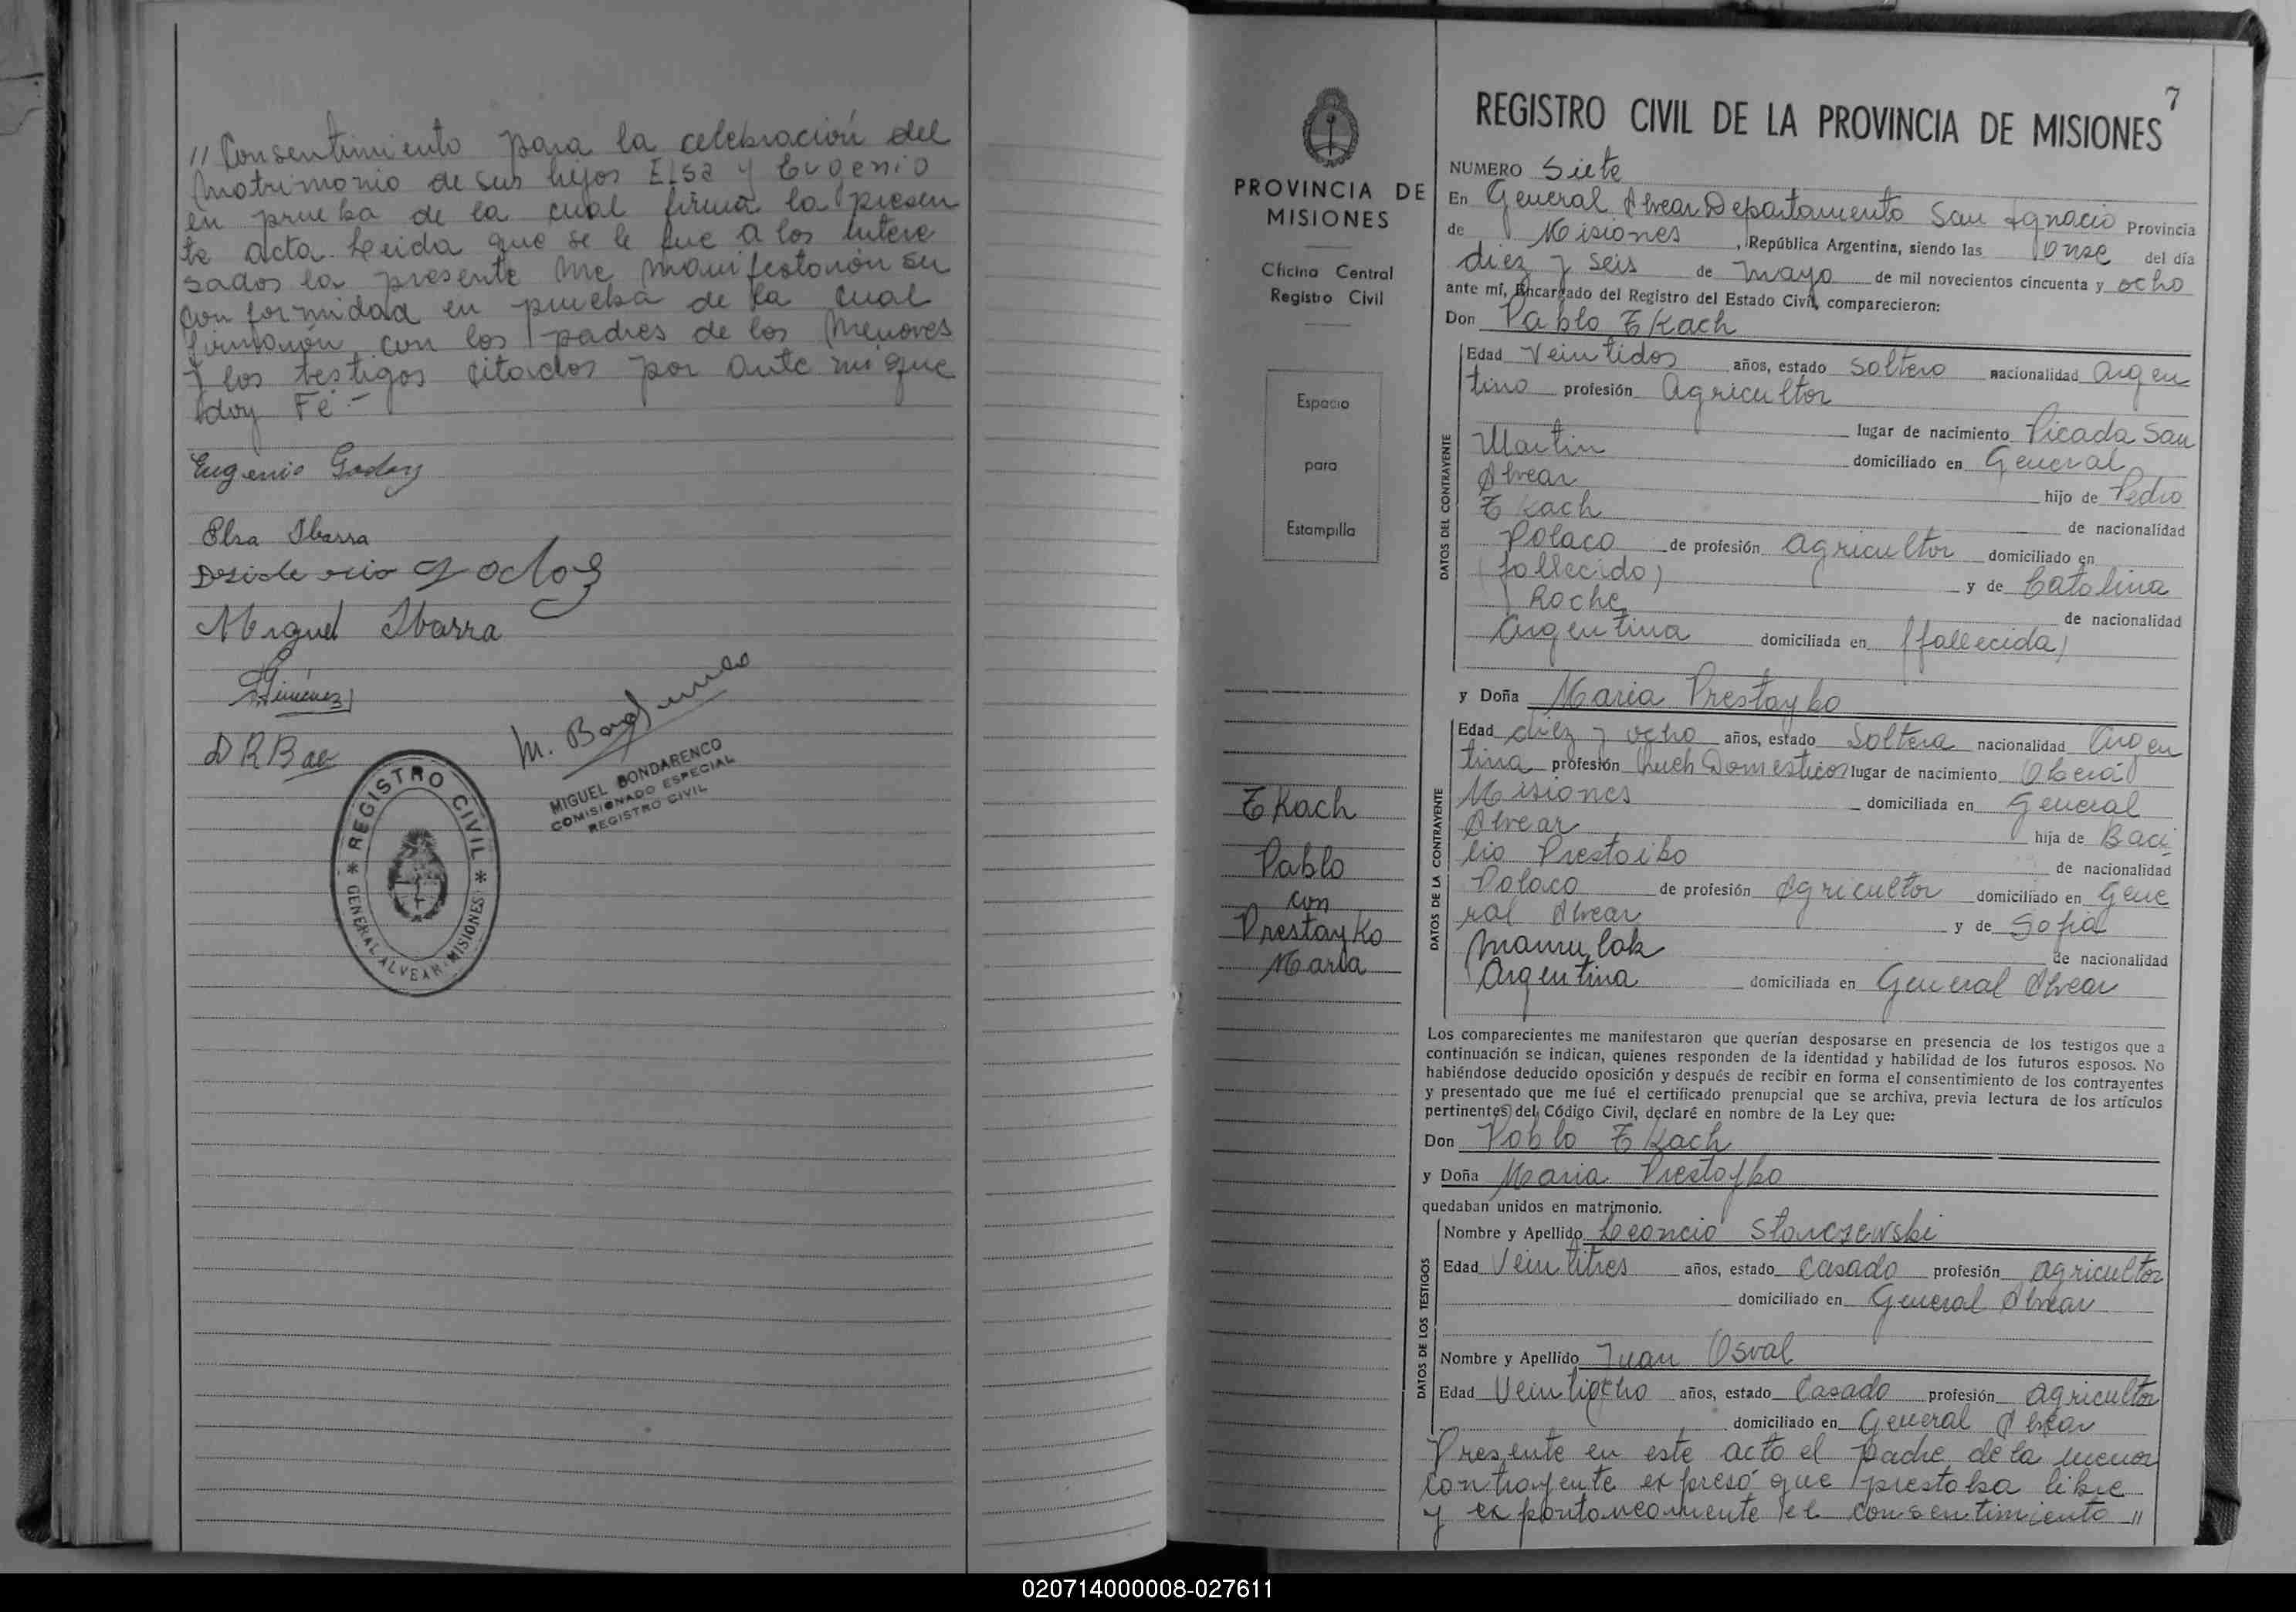 // Consentimiento para la celebración del
Matrimonio de sus hijos Elsa y Eugenio
en prueba de la cual firma la presen
te acta. Leida que se le fue a los intere
sados la presente me manifestarón su
conformidad en prueba de la cual
firmarón con los padres de los menores
y los testigos citados por ante mi que
doy Fé.-
Eugenio Godoy
Elsa Ibarra
Desiderio Godoy
Miguel Ibarra
Gimenez
M. Bondarenco
MIGUEL BONDARENCO
COMISIONADO ESPECIAL
REGISTRO CIVIL
* REGISTRO CIVIL *
GENERAL ALVEAR - MISIONES
PROVINCIA DE
MISIONES
Oficina Central
Registro Civil
Espacio
para
Estampilla
TKach
Pablo
con
Prestayko
Maria
7
REGISTRO CIVIL DE LA PROVINCIA DE MISIONES
NUMERO Siete
En General Alvear Departamento San Ignacio Provincia
de Misiones, República Argentina, siendo las onse del día
diez y seis de mayo de mil novecientos cincuenta y ocho
ante mí, Encargado del Registro del Estado Civil, comparecieron:
Don Pablo TKach
DATOS DEL CONTRAYENTE
Edad Veintidos años, estado Soltero nacionalidad Argen
tino profesión Agricultor
lugar de nacimiento Picada San
Martin domiciliado en General
Alvear hijo de Pedro
TKach de nacionalidad
Polaco de profesión agricultor domiciliado en
(fallecido) y de Catalina
Roche de nacionalidad
Argentina domiciliada en (fallecida)
y Doña Maria Prestayko
DATOS DE LA CONTRAYENTE
Edad diez y ocho años, estado Soltera nacionalidad Argen
tina profesión Queh Domesticos lugar de nacimiento Oberá
Misiones domiciliada en General
Alvear hija de Baci
lio Prestoiko de nacionalidad
Polaco de profesión Agricultor domiciliado en Gene
ral Alvear y de Sofia
Mamulak de nacionalidad
Argentina domiciliada en General Alvear
Los comparecientes me manifestaron que querían desposarse en presencia de los testigos que a
continuación se indican, quienes responden de la identidad y habilidad de los futuros esposos. No
habiéndose deducido oposición y después de recibir en forma el consentimiento de los contrayentes
y presentado que me fué el certificado prenupcial que se archiva, previa lectura de los artículos
pertinentes del Código Civil, declaré en nombre de la Ley que:
Don Pablo TKach
y Doña Maria Prestayko
quedaban unidos en matrimonio.
DATOS DE LOS TESTIGOS
Nombre y Apellido Leoncio Starczewski
Edad Veintitres años, estado Casado profesión agricultor
domiciliado en General Alvear
Nombre y Apellido Juan Osval
Edad Veintiocho años, estado Casado profesión agricultor
domiciliado en General Alvear
Presente en este acto el padre de la menor
contrayente expresó que prestaba libre
y expontaneamente el consentimiento //
020714000008-027611